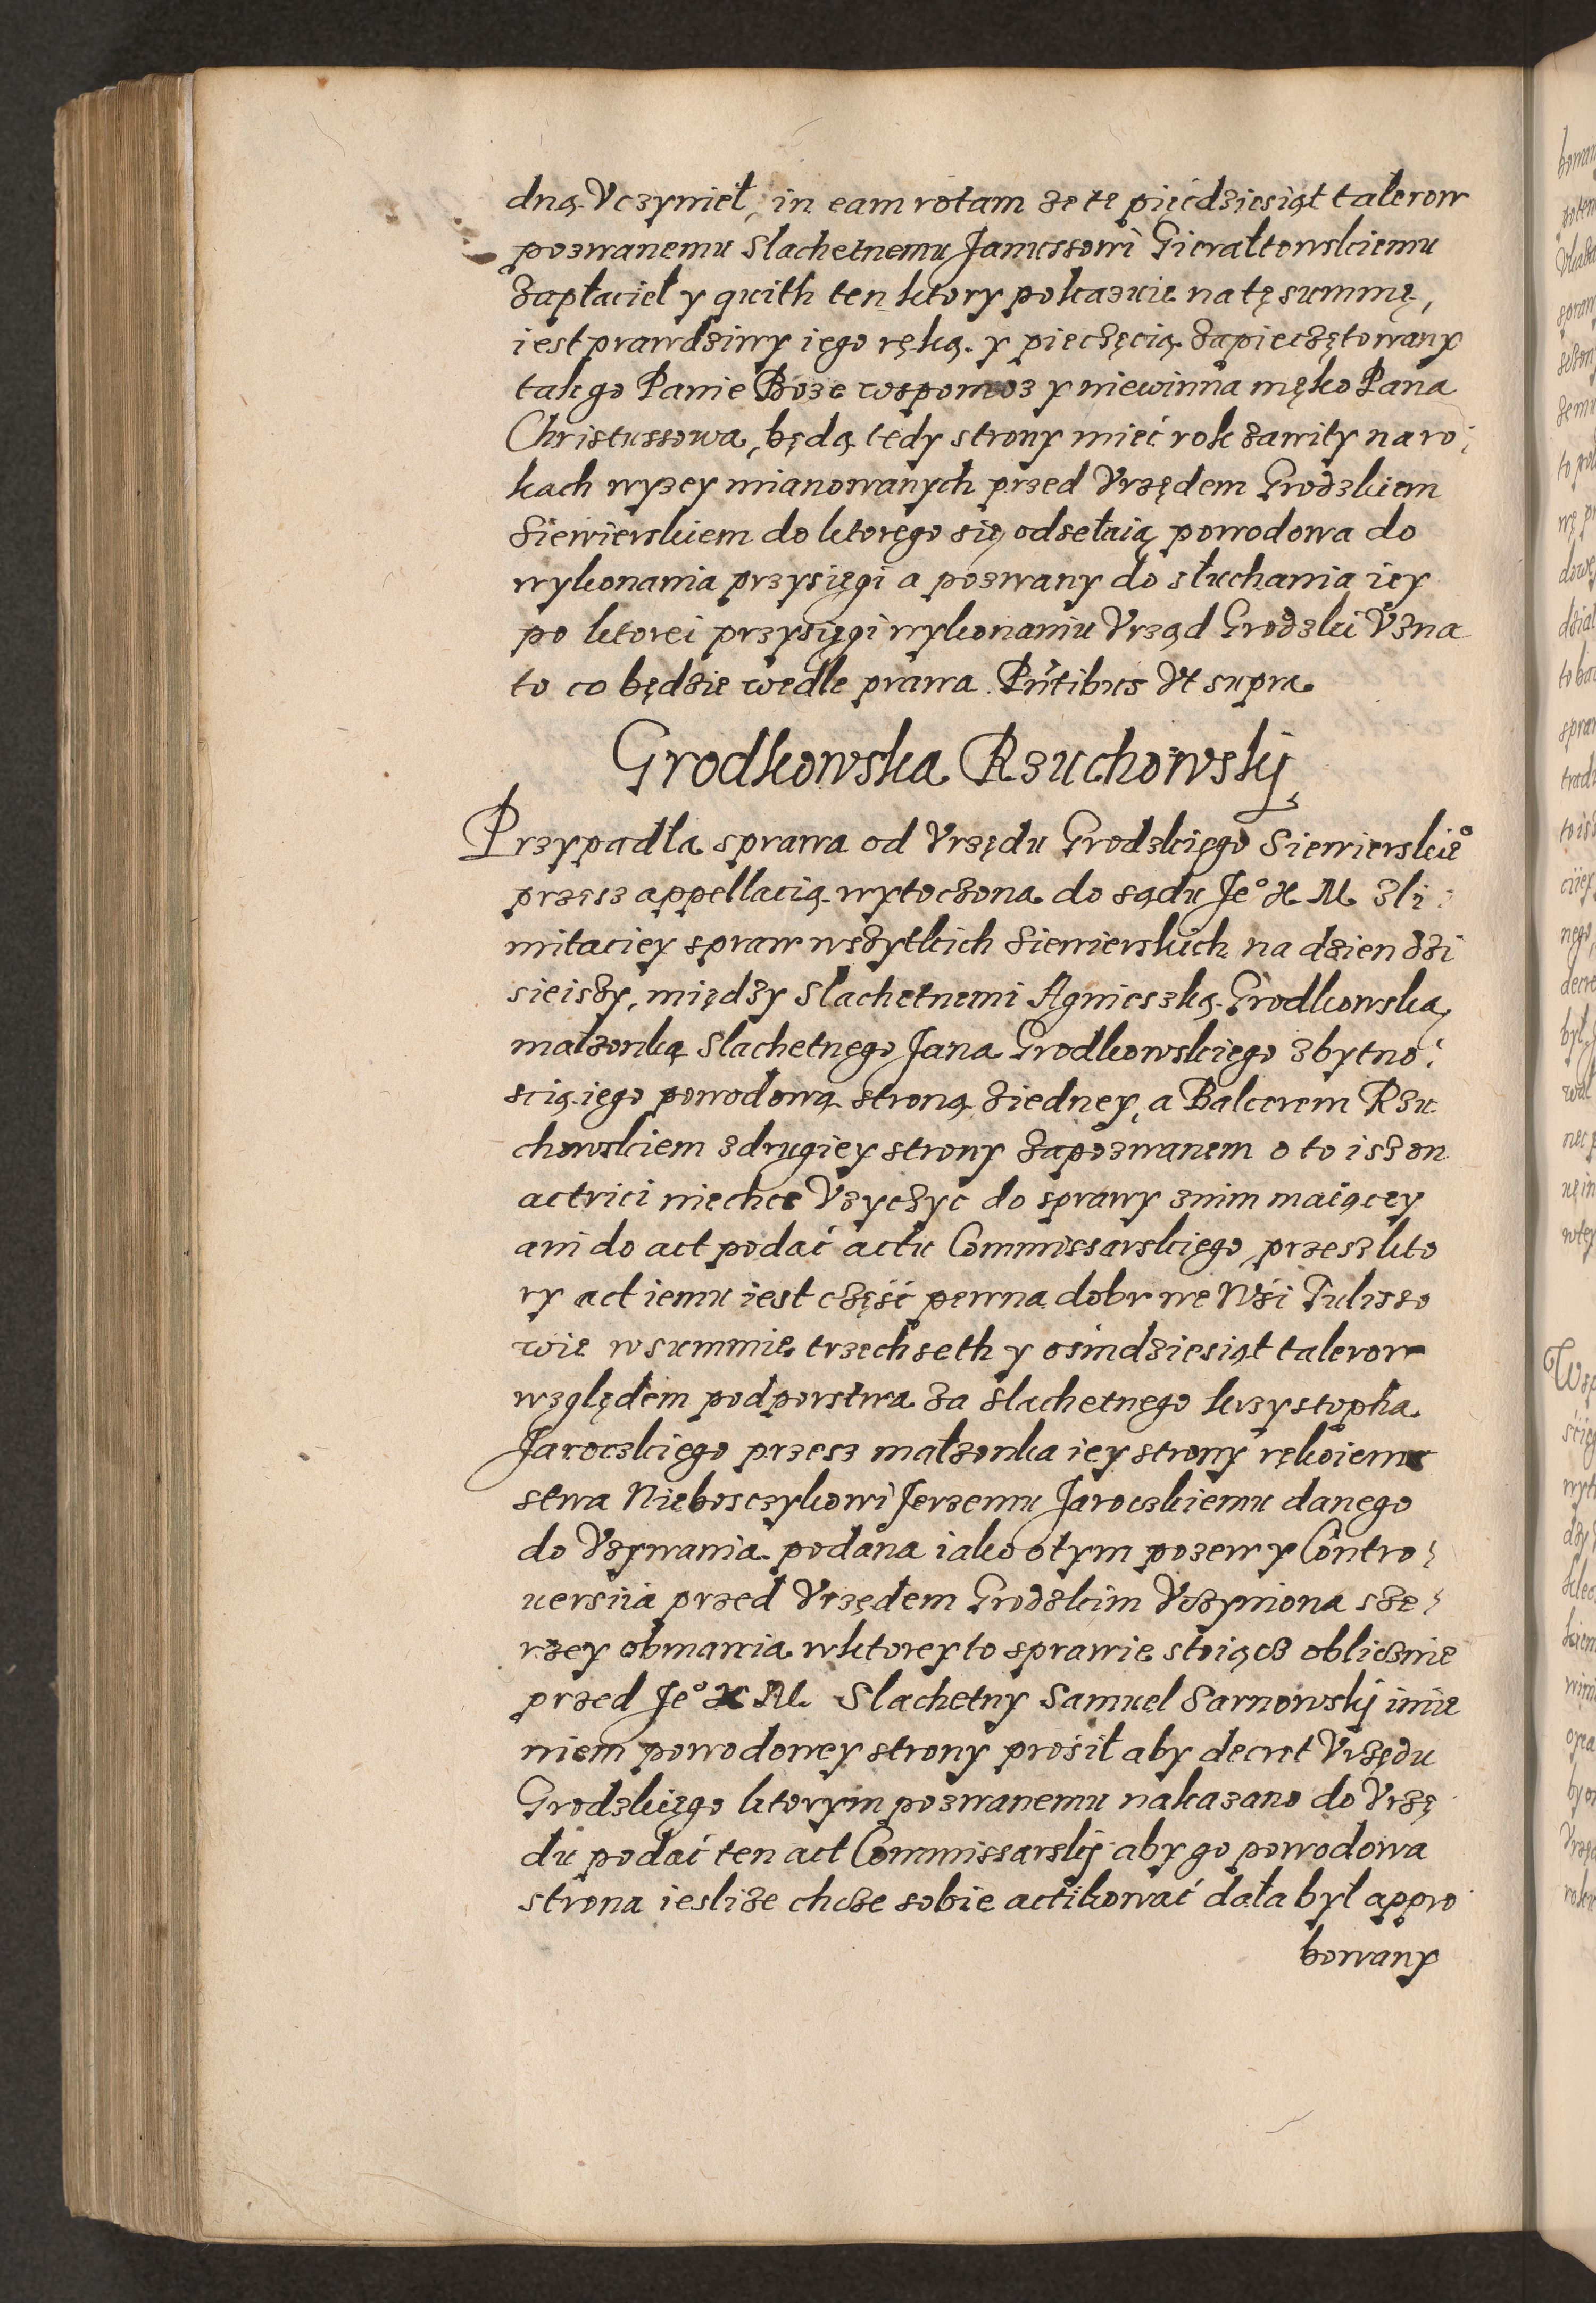 dną Uczynieł, in eam rotam że te pięćdziesiąt talerow
pozwanemu Slachetnemu Janussowi Gierałtowskiemu
Zapłacieł y quith ten ktory pokazuie na tę summę,
iest prawdziwy iego ręką y pieczęcią zapieczętowany
tak go Panie Boze wspomoz y niewinna męko Pana
Christussowa, będą tedy strony mieć rok zawity na ro:
kach wyzey mianowanych przed Urzędem Grodzkiem
Siewierskiem do ktorego się odsełaią powodowa do
wykonania przysięgi a pozwany do słuchania iey
po ktorei przysięgi wykonaniu Urząd Grodzki Uzna
to co będzie wedle prawa. Pntibus Ut supra
Grodkowska Rzuchowskÿ
Przypadła sprawa od Urzędu Grodzkiego Siewierskie°
przesz appellacią wytoczona do sądu Je° X M zli:
mitaciey spraw wszytkich Siewierskich na dzien dzi
sieiszy, między Slachetnemi Agnieszką Grodkowską
małzonką Slachetnego Jana Grodkowskiego zbytno:
scią iego powodową stroną ziedney, a Balcerem Rzu
chowskiem zdrugiey strony zapozwanem o to isz on
actrici niechce Uzyczyc do sprawy znim maiącey
ani do act podać actu Commissarskiego, przesz kto
ry act iemu iest część pewna dobr we Wsi Tulisso
wie w summie trzechseth y osmdziesiąt talerow
względem podporstwa za slachetnego krzystopha
Jaroczkiego przesz małzonka iey strony rękoiem
stwa Nieboszczykowi Jerzemu Jaroczkiemu danego
do Uzywania podana iako o tym pozew y Contro:
uersiia przed Urzędem Grodzkim Uczyniona sze:
rzey obmawia w ktorey to sprawie stoiącz oblicznie
przed Je° X M. Slachetny Samuel Sarnowskÿ imie
niem powodowey strony prosił aby decret Urzędu
Grodzkiego ktorym pozwanemu nakazano do Urzę
du podać ten act Commissarskÿ aby go powodowa
strona iesliże chcze sobie actikować dała był appro
bowany